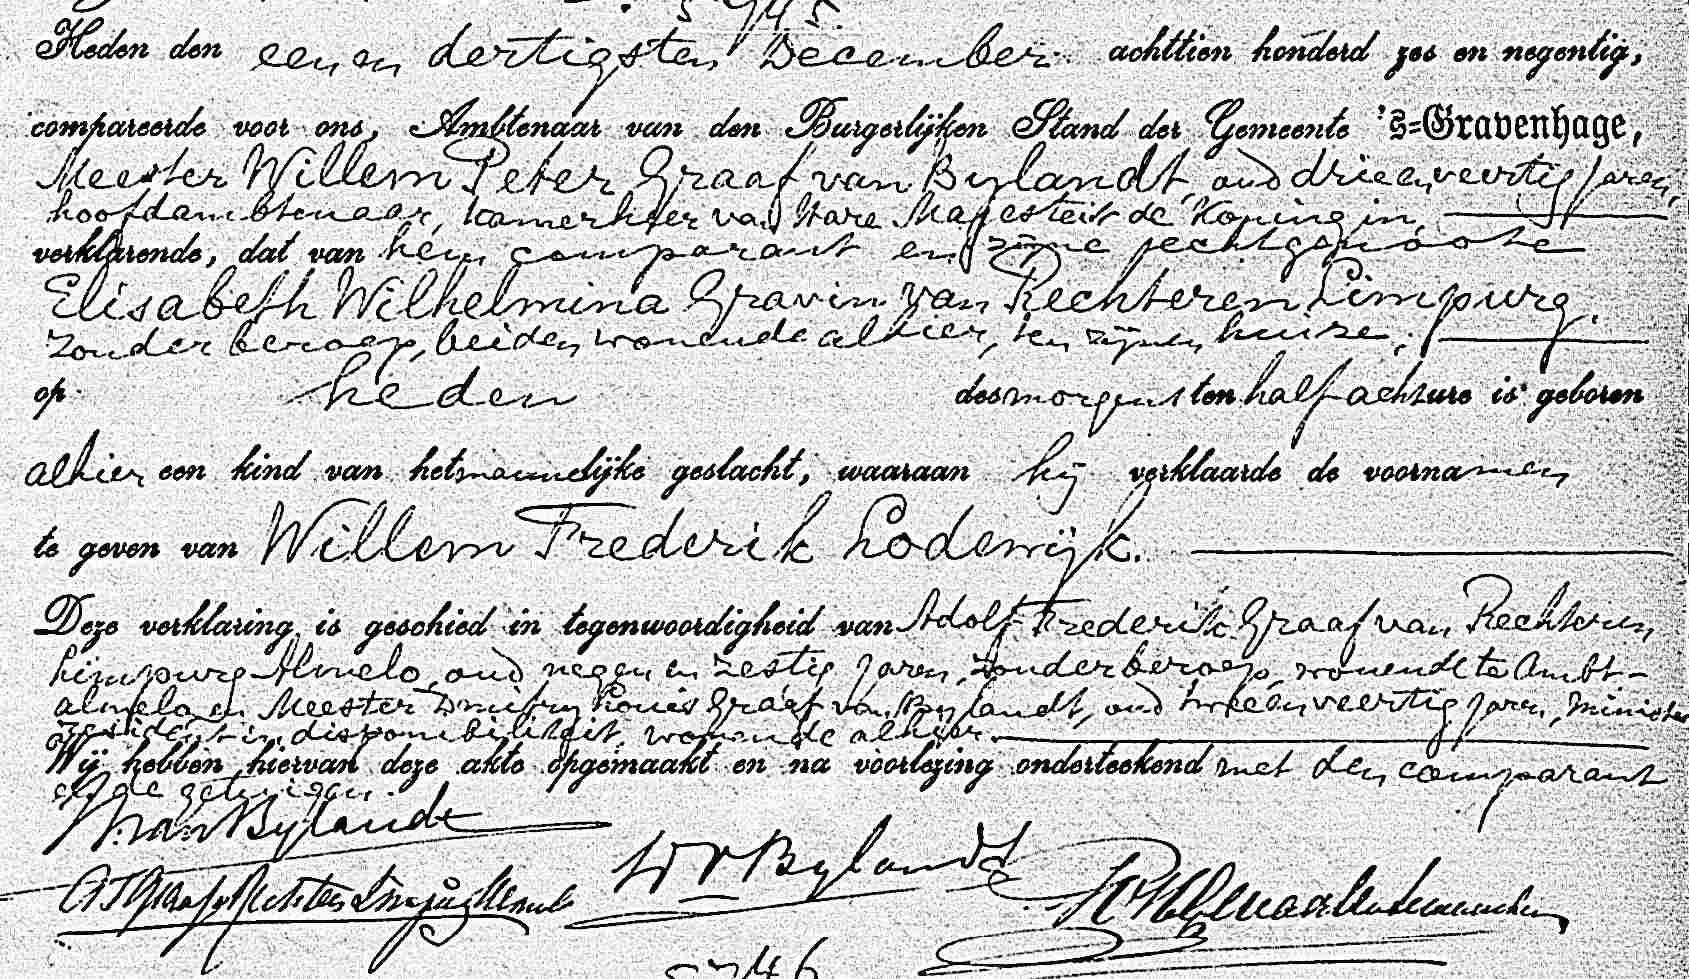 5945.
Heden den een en dertigsten December achttien honderd zes en negentig,
compareerde voor ons, Ambtenaar van den Burgerlijken Stand der Gemeente 's=Gravenhage,
Meester Willem Peter Graaf van Bylandt, oud drie en veertig jaren,
hoofdambtenaar, kamerheer van Hare Majesteit de Koningin,
verklarende, dat van hem comparant en zijne echtgenoote
Elisabeth Wilhelmina Gravin van Rechteren Limpurg.
zonder beroep, beiden wonende alhier, ten zijnen huize,
op heden des morgens ten half acht ure is geboren
alhier een kind van het mannelijke geslacht, waaraan hij verklaarde de voornamen
te geven van Willem Frederik Lodewijk.
Deze verklaring is geschied in tegenwoordigheid van Adolf Frederik Graaf van Rechteren
Limpurg Almelo, oud negen en zestig jaren, zonder beroep, wonende te Ambt-
almelo en Meester Louis Graaf van Bylandt, oud twee en veertig jaren, minister
resident in disponibiliteit, wonende alhier.
Wij hebben hiervan deze akte opgemaakt en na voorlezing onderteekend met den comparant
en de getuigen.
van Bylandt
v Bylandt
5746